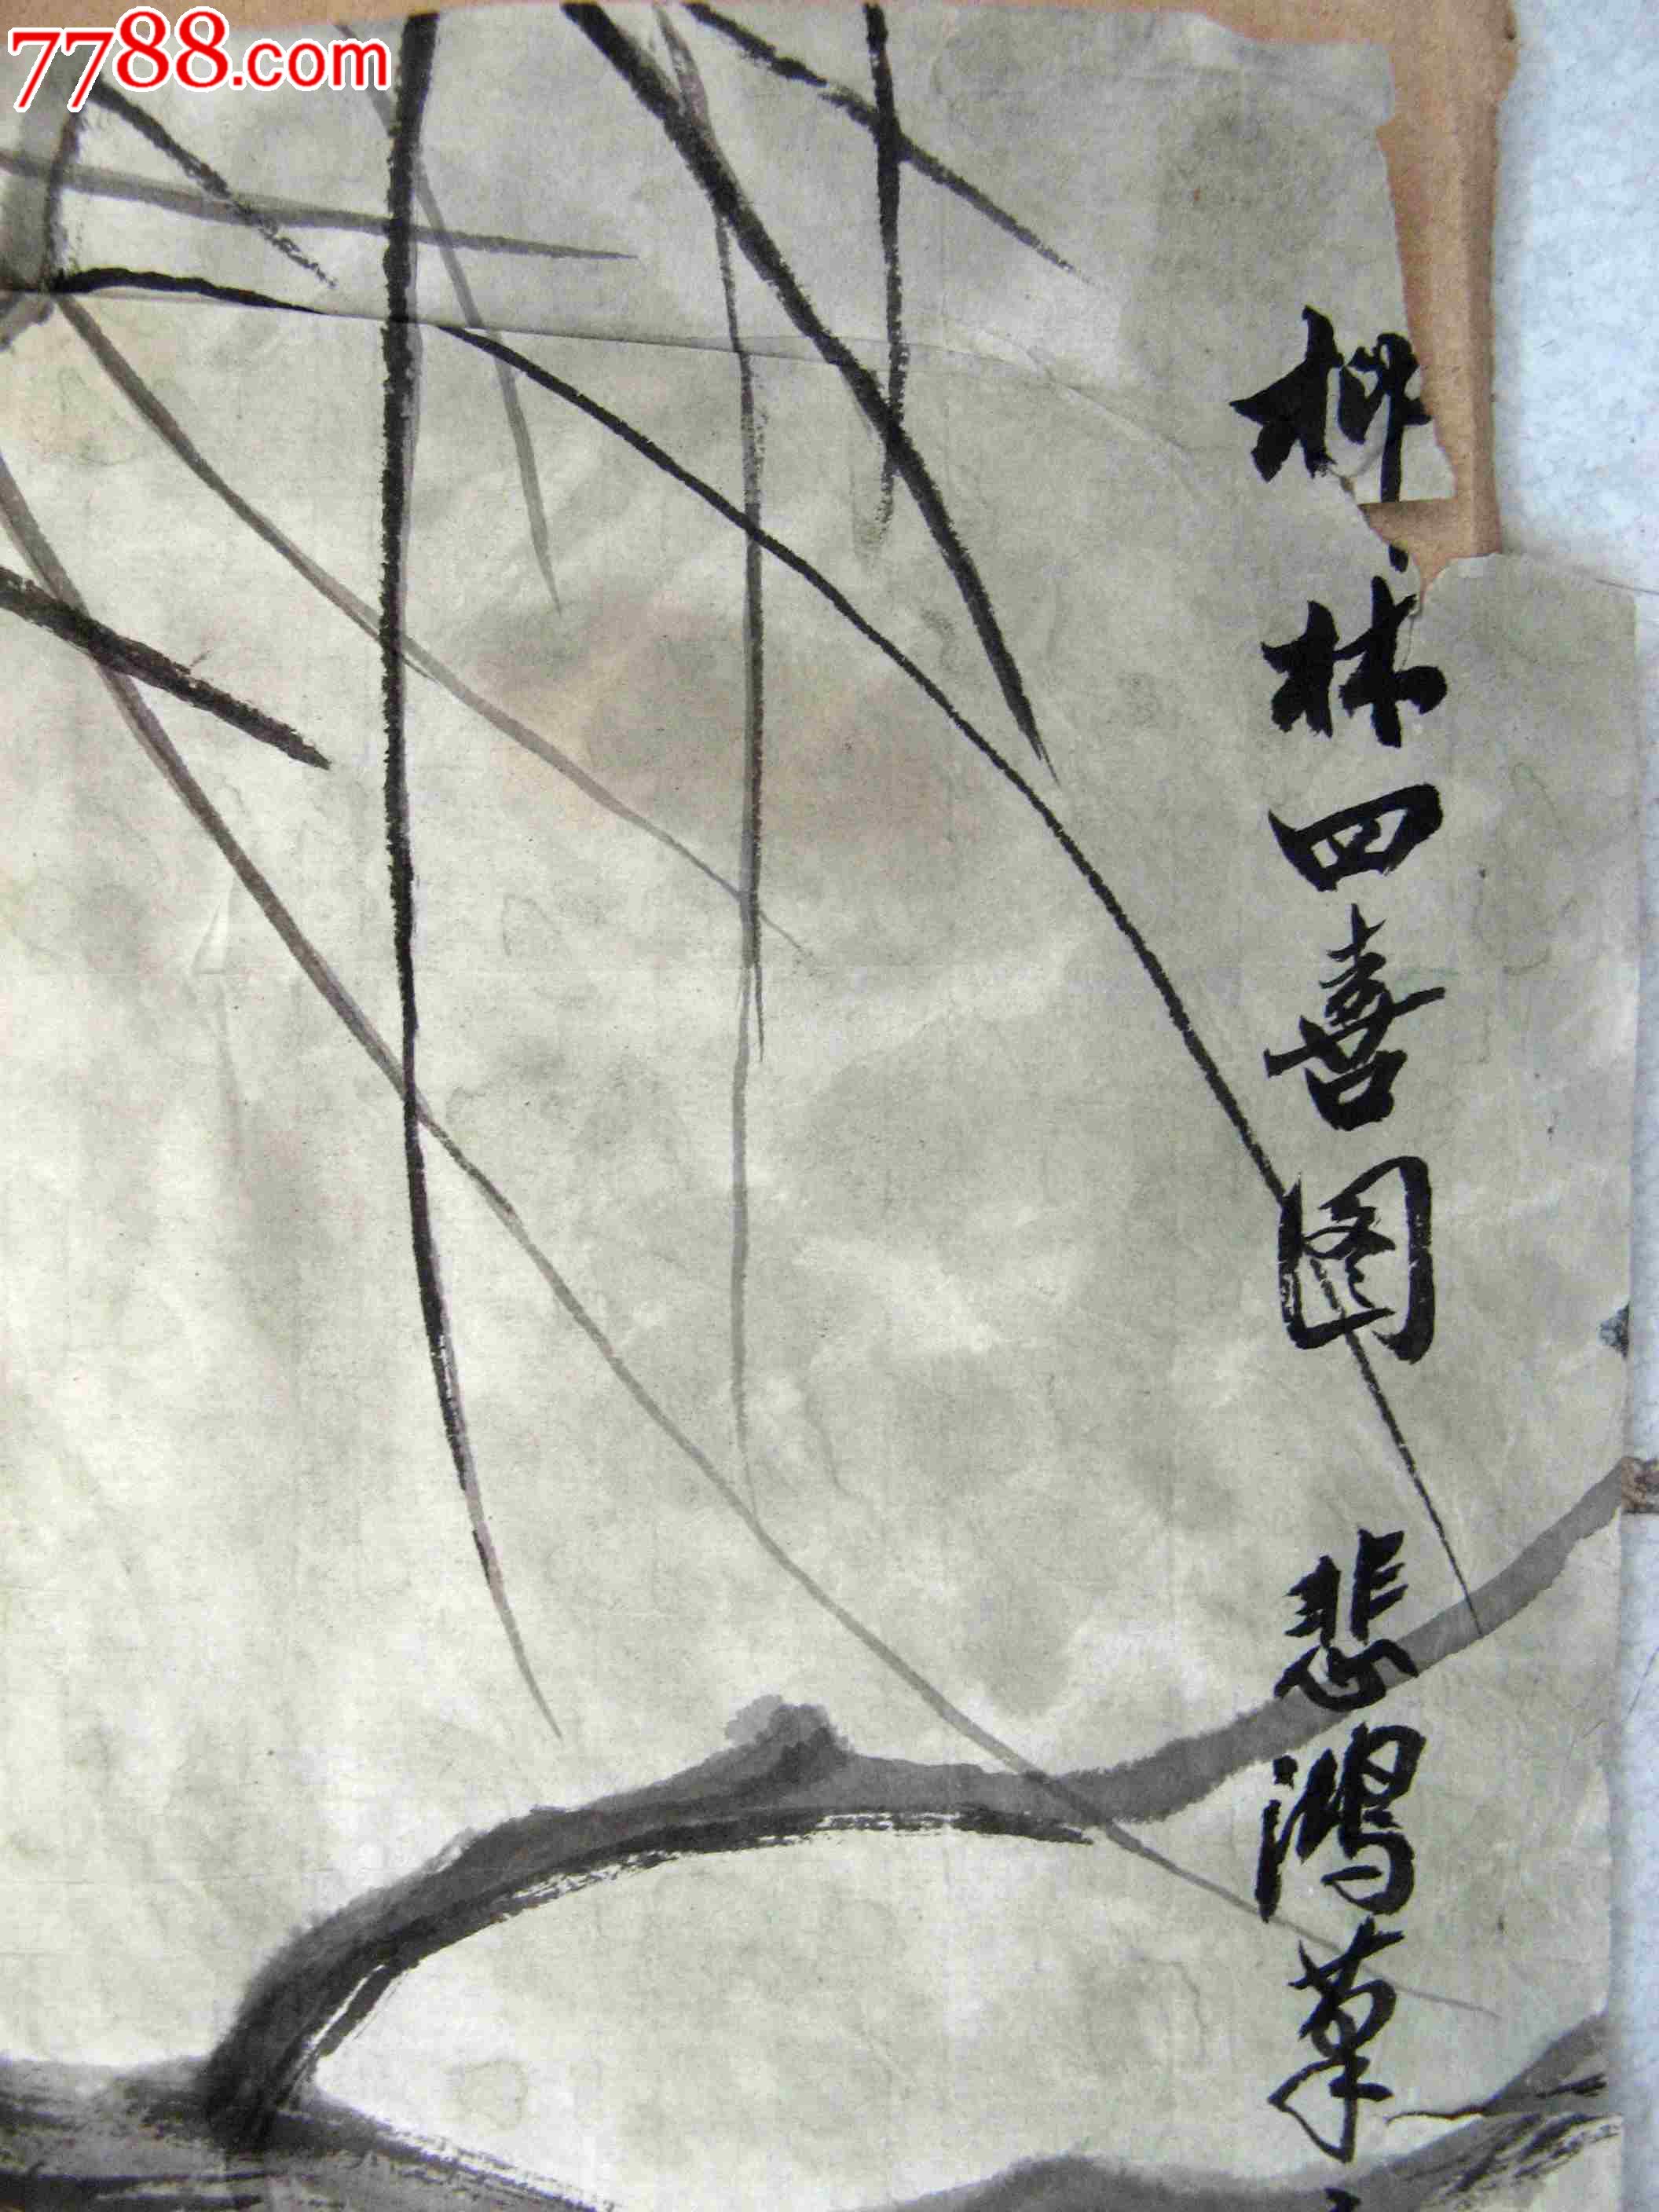 7788.com
柳林四喜图 悲鸿